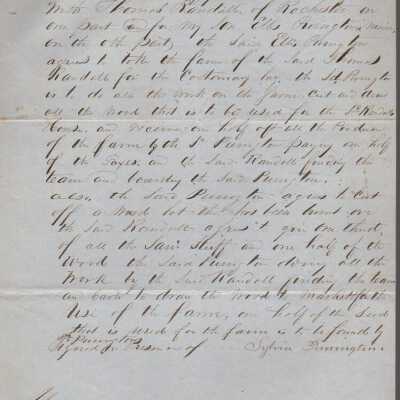 With Thomas Randall of Rochester on
one part and for my Son Ellis Purington, minor,
on the oth part, the Said Ellis Purington
agrees to take the farm of the Said Thomas
Randall for the Customary the Sd Purington
is to do also the Work on the farm Cut and draw
all the Wood that is to be used for the Sd Randall
House, and recieve one half off all the
of the farm by the Sd Purington paying one half
of the Taxes, and the Said Randall finding the
team and boarding the Said Purington.
also the Said Purington agrees to Cut
off a Wood lot that has been burnt over
the Said Randall agrees to give one third
of all the Saw Stuff and one half of the
Wood the Said Purington doing all the
Work by the Said Randall finding the team
and Carts to draw the Wood to market for the
Use of the farm, one half of the Seed
that is used for the farm is to be found by
Sd Purington
Signed in Presence of Sylvia Purington